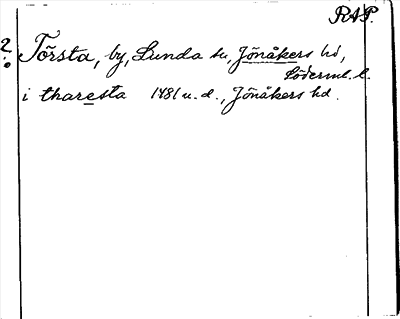 RAP.
2. Törsta, by, Lunda sn, Jönåkers hd,
Söderml. l.
i tharesta 1481 u. d., Jönåkers hd.